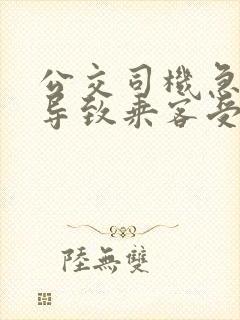 公交司機急
导致乘客受
陸無雙